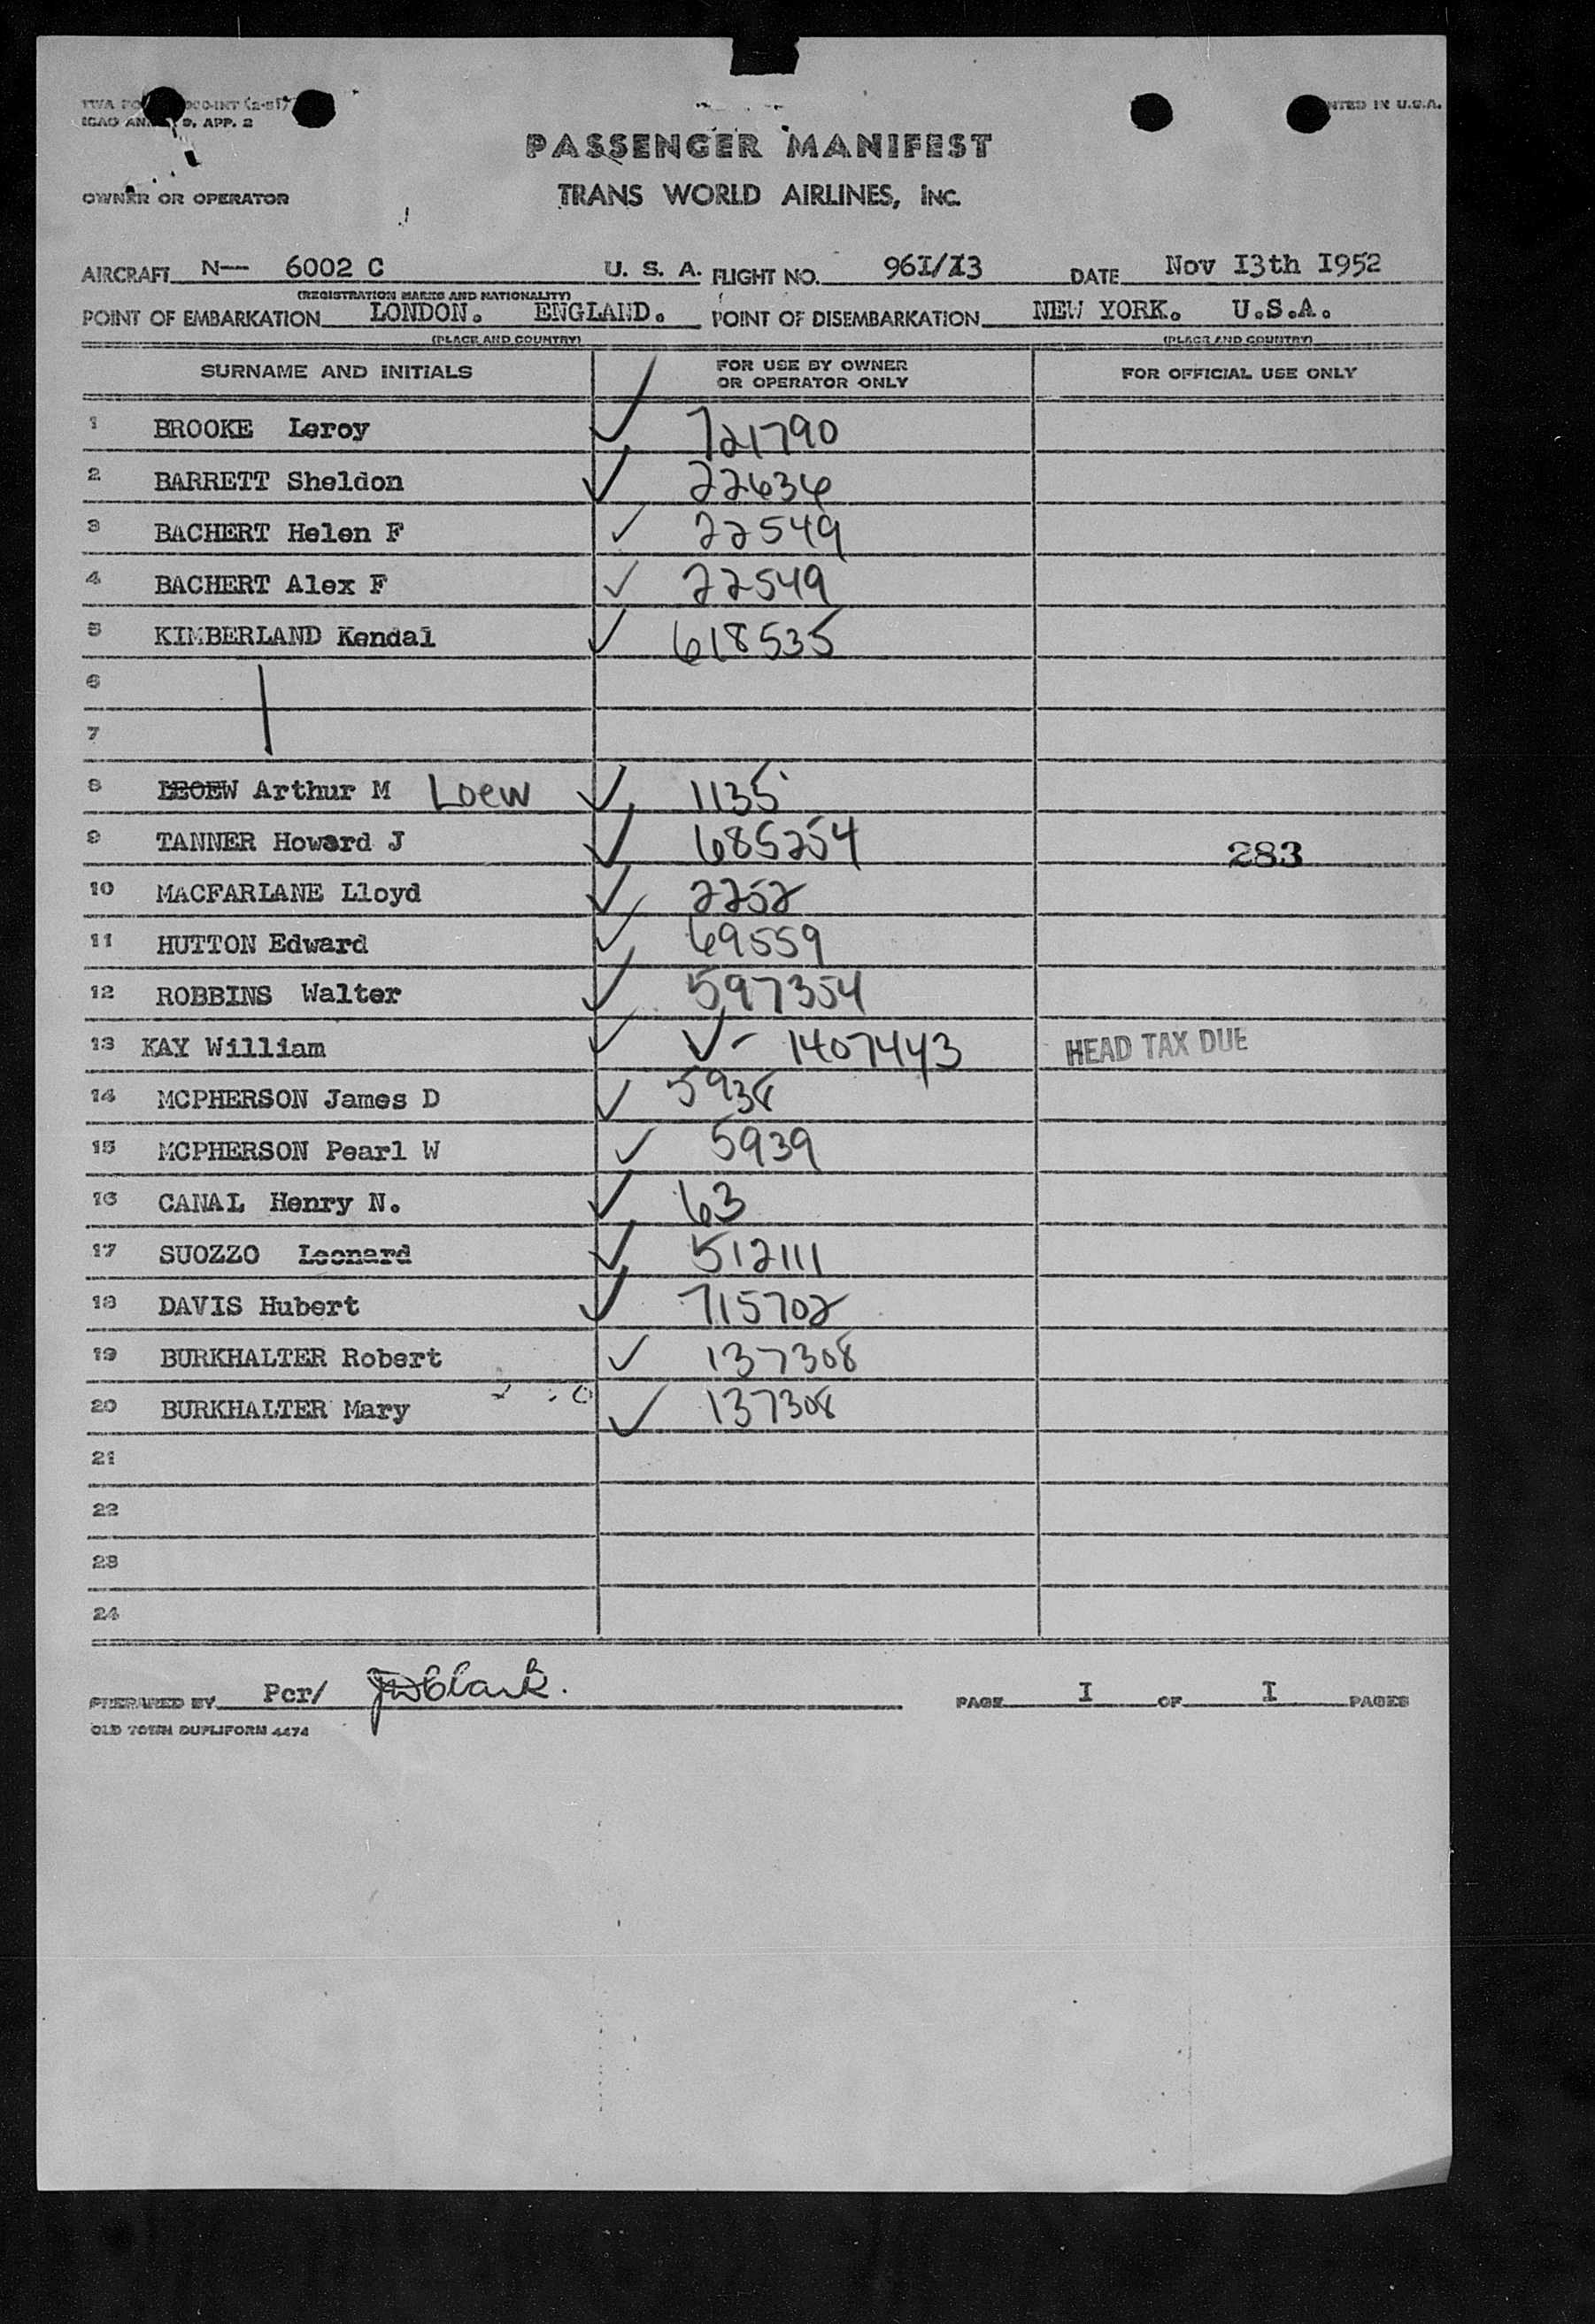 ICAO AN 9, APP. 2
PASSENGER MANIFEST
OWNER OR OPERATOR TRANS WORLD AIRLINES, INC.
AIRCRAFT N— 6002 C U. S. A. FLIGHT NO. 96I/I3 DATE Nov I3th I952
(REGISTRATION MARKS AND NATIONALITY)
POINT OF EMBARKATION LONDON. ENGLAND. POINT OF DISEMBARKATION NEW YORK. U.S.A.
(PLACE AND COUNTRY) (PLACE AND COUNTRY)
SURNAME AND INITIALS FOR USE BY OWNER OR OPERATOR ONLY FOR OFFICIAL USE ONLY
1 BROOKE Leroy ✓ 721790
2 BARRETT Sheldon ✓ 22636
3 BACHERT Helen F ✓ 22549
4 BACHERT Alex F ✓ 22549
5 KIMBERLAND Kendal ✓ 618535
6
7
8 LEOEW Arthur M Loew ✓ 1135
9 TANNER Howard J ✓ 685254 283
10 MACFARLANE Lloyd ✓ 2252
11 HUTTON Edward ✓ 69559
12 ROBBINS Walter ✓ 597354
13 KAY William ✓ V- 1407443 HEAD TAX DUE
14 MCPHERSON James D ✓ 5938
15 MCPHERSON Pearl W ✓ 5939
16 CANAL Henry N. ✓ 63
17 SUOZZO Leonard ✓ 512111
18 DAVIS Hubert ✓ 715702
19 BURKHALTER Robert ✓ 137308
20 BURKHALTER Mary ✓ 137308
21
22
23
24
PREPARED BY Per/ JW Clark. PAGE I OF I PAGES
OLD TOWN DUPLIFORM 4474